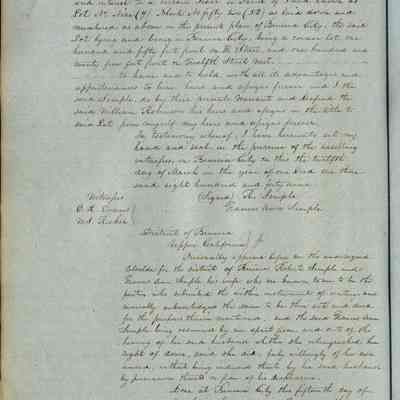 and interest to a certain
Lot No. Nine (9) Block No fifty two (52) as laid down and
numbered as above in the printed plan of Benicia City, the said
Lot lying and being in Benicia City, being a corner lot one
hundred and fifty feet front on H Street and one hundred and
twenty five feet front on Twelfth Street West.
to have and to hold with all its advantages and
appurtenances to him his heirs and assigns forever and I the
said Semple, do by these presents Warrant and Defend the
said William Robinson his heirs and assigns in the title to
said Lot from myself my heirs and assigns forever.
In testimony whereof, I have hereunto set my
hand and seal in the presence of the subscribing
witnesses, in Benicia City on this the twelfth
day of March in the year of our Lord one thou
sand eight hundred and forty nine
Witnesses (Signed) Semple
Frances Ann Semple
District of Benicia
Upper California
Personally appeared before me the undersigned
Alcalde for the district of Benicia Robert Semple and
Frances Ann Semple his wife who are known to me to be the
parties who the within instrument of writing and
acknowledged the same to be their act and deed
for the purposes therein mentioned, and the said Frances Ann
Semple being examined by me apart from and out of the
hearing of her said husband whether she relinquished her
right of dower, said she did, fully willingly of her own
accord, without being induced thereto by her said husband
by persuasion threats or fear of his displeasure.
Done at Benicia City the fifteenth day of